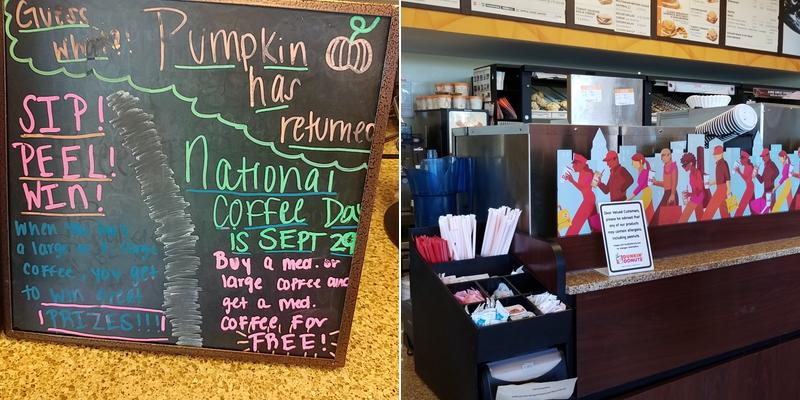 Guess
what?!
Pumpkin
has
returned
SIP!
PEEL!
WIN!
When you buy
a large or x-large
coffee, you get
to win great
PRIZES!!!
National
Coffee Day
is SEPT 29
Buy a med. or
large coffee and
get a med.
coffee for
FREE!
Dear Valued Customers,
please be advised that
any of our products
may contain allergens,
including peanuts.
DUNKIN'
DONUTS